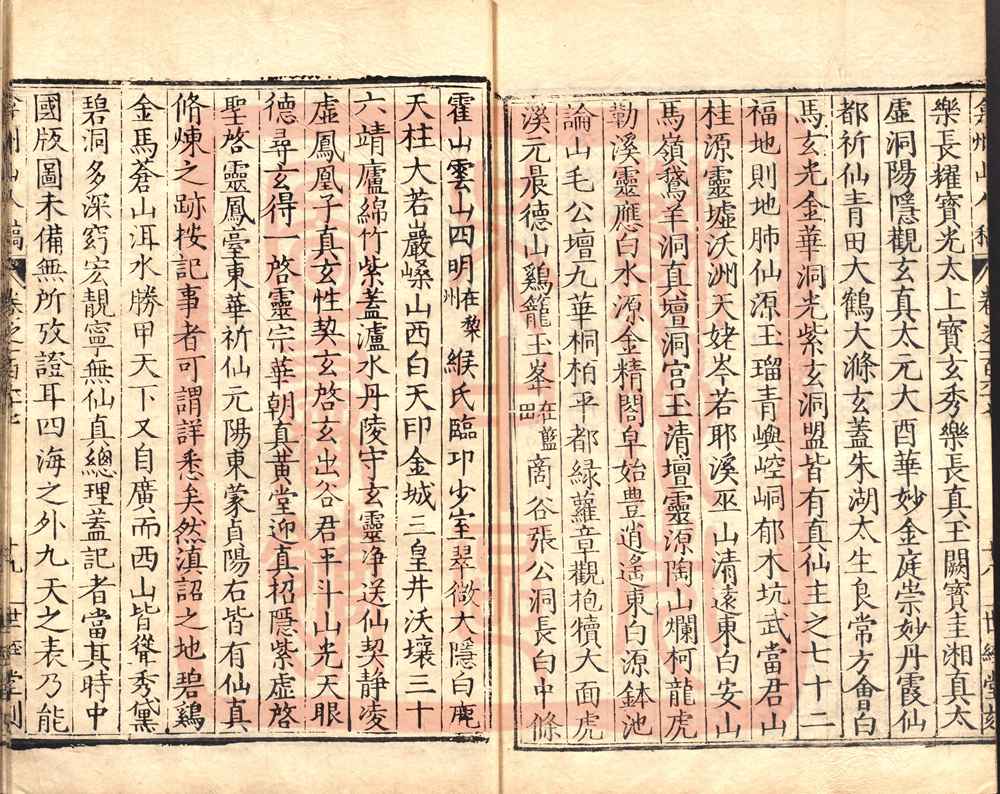 樂長耀寶光太上寶玄秀樂長真王闕寶圭湘真太
虛洞陽隱觀玄真太元大酉華妙金庭崇妙丹霞仙
都祈仙青田大鶴大滌玄蓋朱湖太生良常方會白
馬玄光金華洞光紫玄洞盟皆有真仙主之七十二
福地則地肺仙源玉瑠青嶼崆峒郁木坑武當君山
桂源靈墟沃洲天姥岑若耶溪巫山清遠東白安山
馬嶺鵝羊洞真壇洞宮玉清壇靈源陶山爛柯龍虎
勒溪靈應白水源金精閤皁始豊逍遙東白源鉢池
論山毛公壇九華桐柏平都緑蘿章觀枹犢大面虎
溪元晨德山鷄籠玉峯在藍田商谷張公洞長白中條
霍山雲山四明在黎州緱氏臨卭少室翠微大隱白鹿
天柱大若巖嵊山西白天印金城三皇井沃壤三十
六靖廬綿竹紫蓋瀘水丹陵守玄靈净送仙契静凌
虛鳳凰子真玄性契玄啓玄出谷君平斗山光天眼
德尋玄得一啓靈宗華朝真黄堂迎真招隱紫虛啓
聖啓靈鳳臺東華祈仙元陽東蒙貞陽右皆有仙真
脩煉之跡按記事者可謂詳悉矣然滇詔之地碧鷄
金馬蒼山洱水勝甲天下又自廣而西山皆聳秀黛
碧洞多深窈宏靚寧無仙真總理蓋記者當其時中
國版圖未備無所攷證耳四海之外九天之表乃能